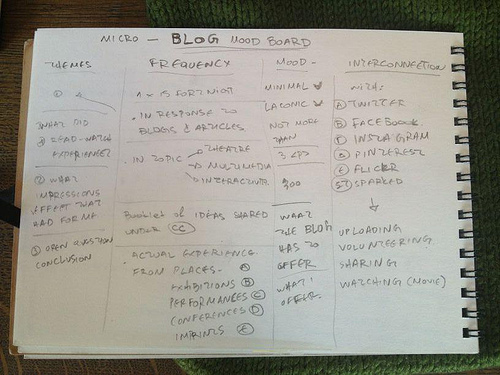 MICRO - BLOG MOOD BOARD
THEMES
WHAT DID
READ-WATCH
EXPERIENCE?
② WHAT
IMPRESSIONS
EFFECT THAT
HAD FOR ME
③ OPEN QUESTION
CONCLUSION
FREQUENCY
1 x IS FORTNIGT
· IN RESPONSE TO
BLOGS & ARTICLES
· IN TOPIC
THEATRE
MULTIMEDIA
INTERACTIVE
BOOKLET OF IDEAS SHARED
UNDER CC
· ACTUAL EXPERIENCE
FROM PLACES - A
EXHIBITIONS B
PERFORMANCES C
CONFERENCES D
IMPRINTS E
MOOD -
MINIMAL
LACONIC
NOT MORE
THAN
300
WHAT
THE BLOG
HAS TO
OFFER
WHAT I
OFFER.
INTERCONNECTION
WITH:
TWITTER
FACEBOOK
INSTAGRAM
PINTEREST
FLICKR
UPLOADING
VOLUNTEERING
SHARING
WATCHING (MOVIE)